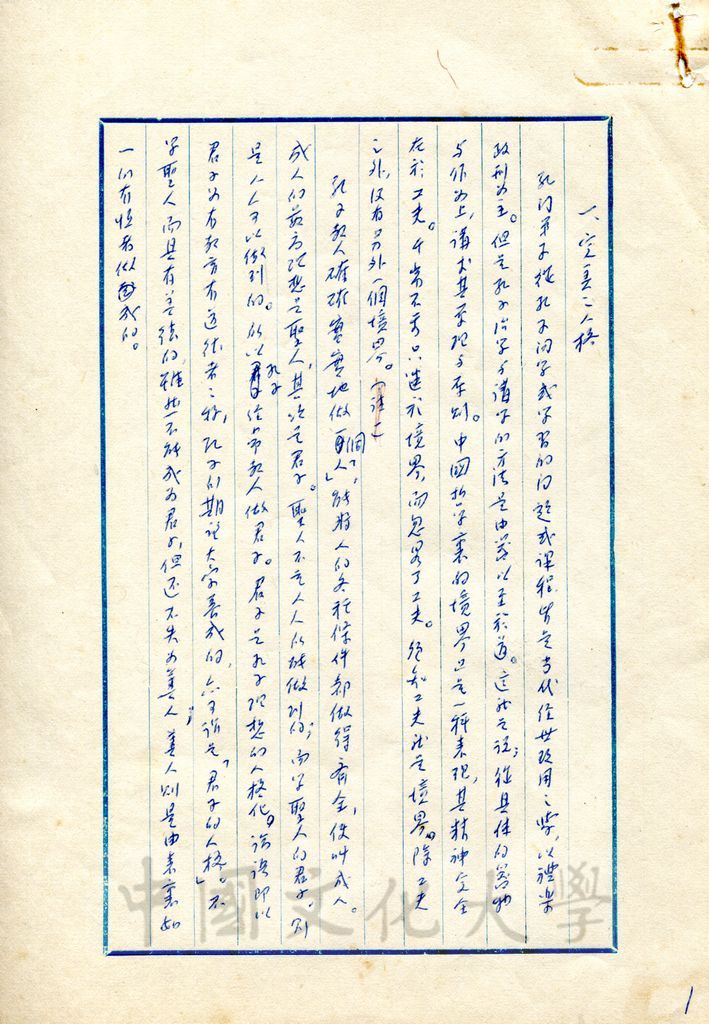 一、完美之人格
孔門弟子從孔子問學或學習的問題或課程皆是當代經世致用之學，以禮樂
政刑為主。但是孔子治學與講學的方法是由藝以至於道。這就是說；從具體的器物
與作為上，講求其原理與原則。中國哲學裏的境界只是一種表現，其精神完全
在於工夫。千萬不可只進於境界，而忽略了工夫。須知工夫就是境界，除工夫
之外，沒有另外一個境界。（註一
孔子教人確確實實地做個「人」，能將人的各種條件都做得齊全，便叫成人。
成人的最高理想是聖人，其次是君子。聖人不是人人所能做到的；而學聖人的君子，則
是人人可以做到的。所以孔子經常教人做君子。君子是孔子理想的人格化，論語即以
君子為有教育有道德者之稱，孔子們期許大學養成的，亦可說是「君子的人格」。不
學聖人而具有善德的，雖然不能成為君子，但還不失為善人；善人則是由表裏如
一的有恆者做成的。
中國文化大學
1